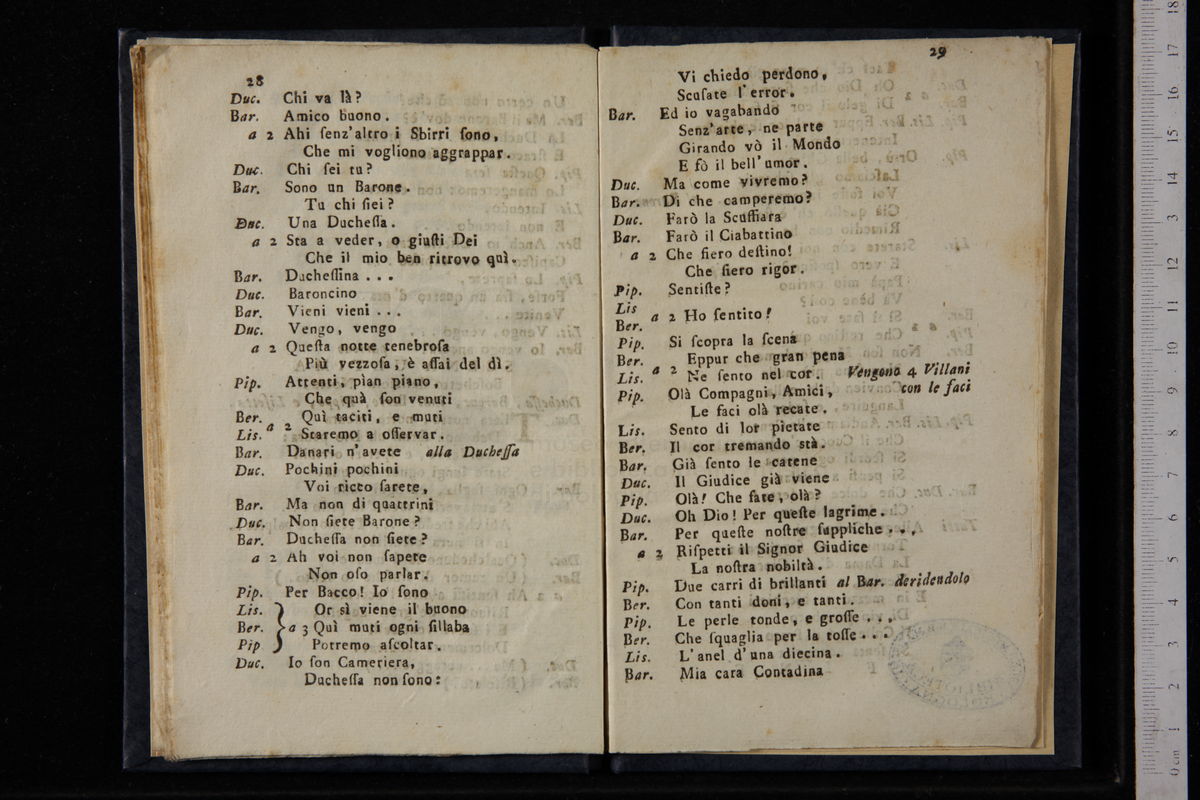 28
Duc. Chi va là?
Bar. Amico buono.
a 2 Ahi ſenz'altro i Sbirri ſono,
Che mi vogliono aggrappar.
Duc. Chi ſei tu?
Bar. Sono un Barone.
Tu chi ſiei?
Duc. Una Ducheſſa.
a 2 Sta a veder, o giuſti Dei
Che il mio ben ritrovo quì.
Bar. Ducheſſina . . .
Duc. Baroncino
Bar. Vieni vieni . . .
Duc. Vengo, vengo
a 2 Queſta notte tenebroſa
Più vezzoſa, è aſſai del dì.
Pip. Attenti, pian piano,
Che quà ſon venuti
Ber. Quì taciti, e muti
a 2
Lis. Staremo a oſſervar.
Bar. Danari n'avete alla Ducheſſa
Duc. Pochini pochini
Voi ricco ſarete,
Bar. Ma non di quattrini
Duc. Non ſiete Barone?
Bar. Ducheſſa non ſiete?
a 2 Ah voi non ſapete
Non oſo parlar.
Pip. Per Bacco! Io ſono
Lis. Or sì viene il buono
Ber. a 3 Quì muti ogni ſillaba
Pip Potremo aſcoltar.
Duc. Io ſon Cameriera,
Ducheſſa non ſono:
29
Vi chiedo perdono,
Scuſate l'error.
Bar. Ed io vagabando
Senz'arte, ne parte
Girando vò il Mondo
E fò il bell'umor.
Duc. Ma come vivremo?
Bar. Di che camperemo?
Duc. Farò la Scuffiara
Bar. Farò il Ciabattino
a 2 Che fiero deſtino!
Che fiero rigor.
Pip. Sentiſte?
Lis
a 2 Ho ſentito!
Ber.
Pip. Si ſcopra la ſcena
Ber. Eppur che gran pena
a 2
Lis. Ne ſento nel cor. Vengono 4 Villani
Pip. Olà Compagni, Amici, con le faci
Le faci olà recate.
Lis. Sento di lor pietate
Ber. Il cor tremando stà.
Bar. Già ſento le catene
Duc. Il Giudice già viene
Pip. Olà! Che fate, olà?
Duc. Oh Dio! Per queſte lagrime.
Bar. Per queſte noſtre ſuppliche . . .
a 2 Riſpetti il Signor Giudice
La noſtra nobiltà.
Pip. Due carri di brillanti al Bar. deridendolo
Ber. Con tanti doni, e tanti.
Pip. Le perle tonde, e groſſe . . .
Ber. Che ſquaglia per la toſſe . . .
Lis. L'anel d'una diecina.
Bar. Mia cara Contadina